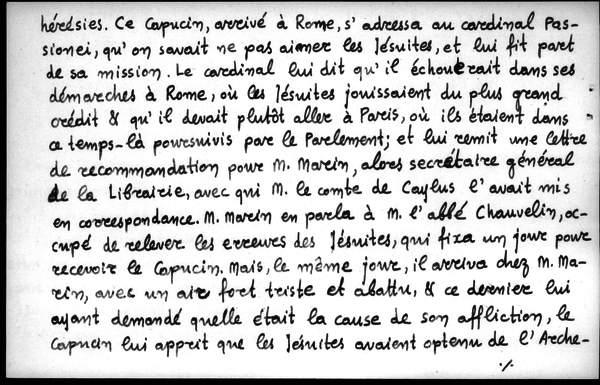 hérésies. Ce Capucin, arrivé à Rome, s'adressa au cardinal Pas-
sionei, qu'on savait ne pas aimer les Jésuites, et lui fit part
de sa mission. Le cardinal lui dit qu'il échouerait dans ses
démarches à Rome, où les Jésuites jouissaient du plus grand
crédit & qu'il devait plutôt aller à Paris, où ils étaient dans
ce temps-là poursuivis par le Parlement; et lui remit une lettre
de recommandation pour M. Marin, alors secrétaire général
de la Librairie, avec qui M. le comte de Caylus l'avait mis
en correspondance. M. Marin en parla à M. l'abbé Chauvelin, oc-
cupé de relever les erreurs des Jésuites, qui fixa un jour pour
recevoir le Capucin. Mais, le même jour, il arriva chez M. Ma-
rin, avec un air fort triste et abattu, & ce dernier lui
ayant demandé quelle était la cause de son affliction, le
Capucin lui apprit que les Jésuites avaient optenu de l'Arche-
./.